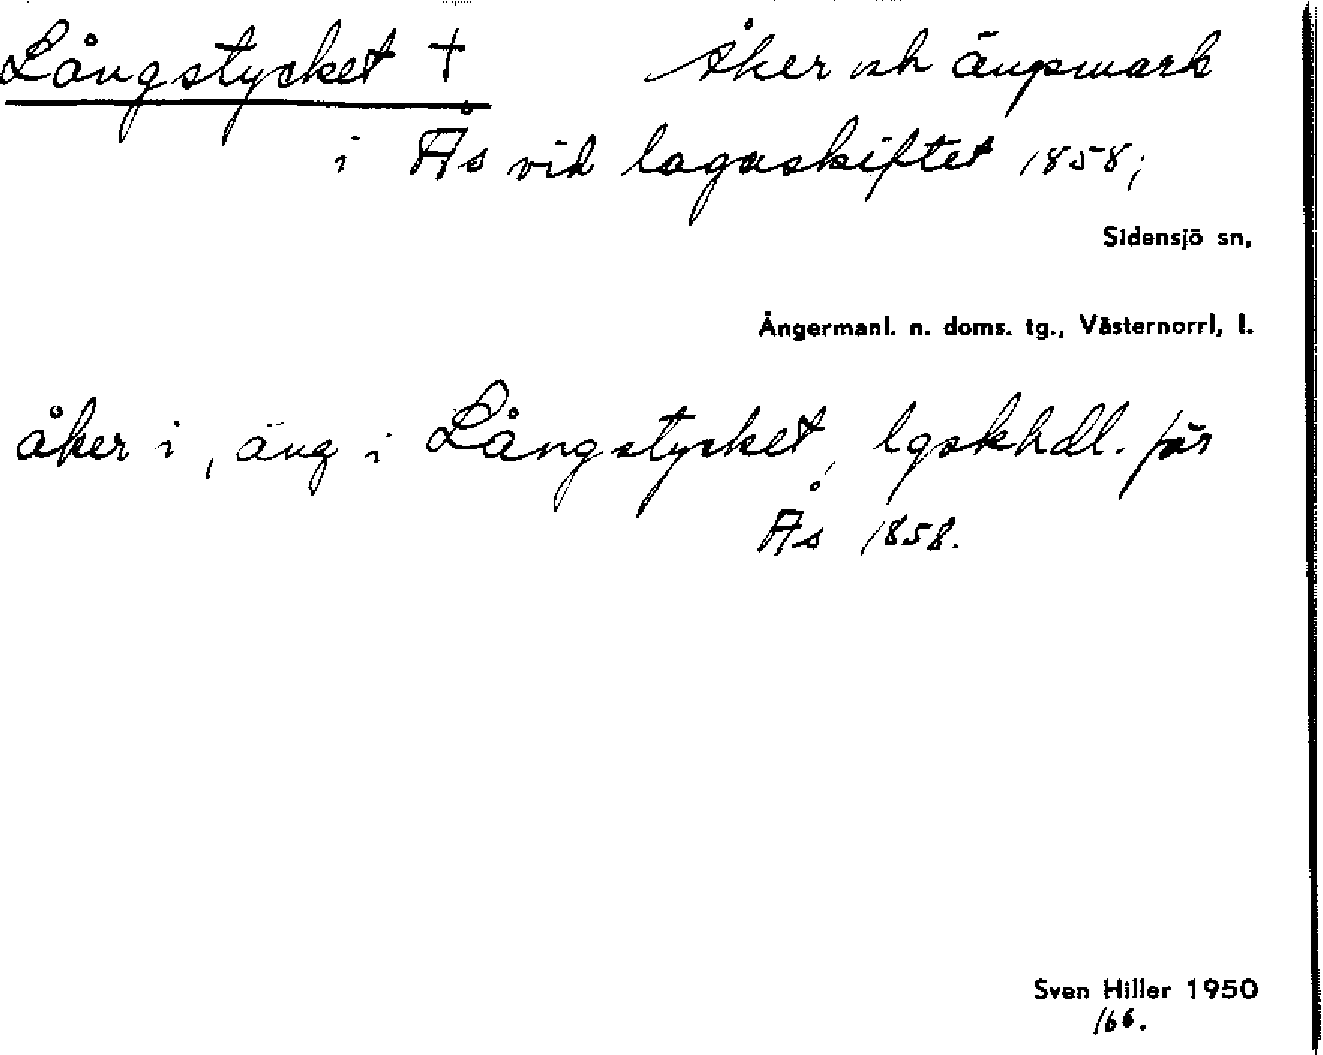 Långstycket †
Åker och ängsmark
i Ås vid lagaskiftet 1858;
Sidensjö sn,
Ångermanl. n. doms. tg., Västernorrl, l.
åker i, äng i Långstycket, lgskhdl. för
Ås 1858.
Sven Hiller 1950
166.